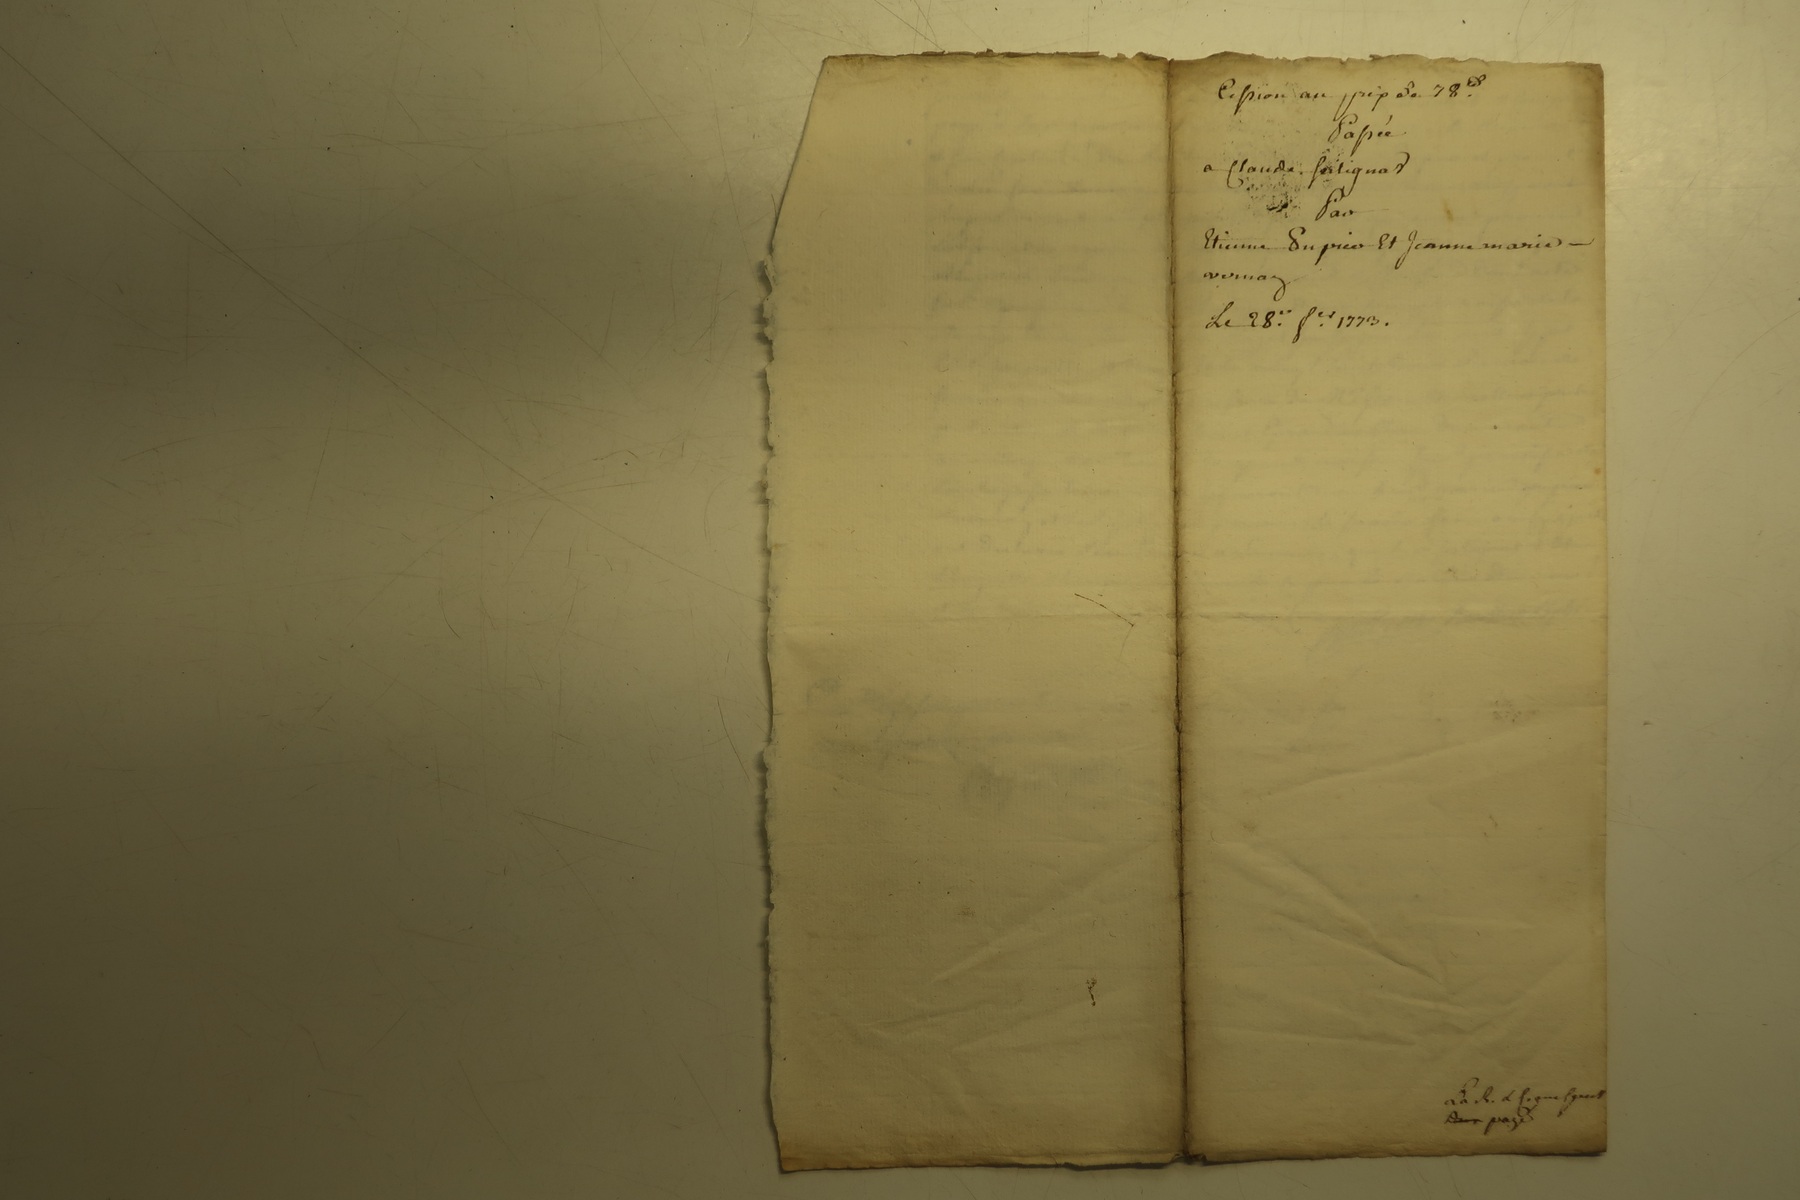 Cession au prix de 78#
Passée
a Claude salignat
Par
Etienne Dupier Et Jeanne marie
vernay
Le 28e. fer. 1773.
payé